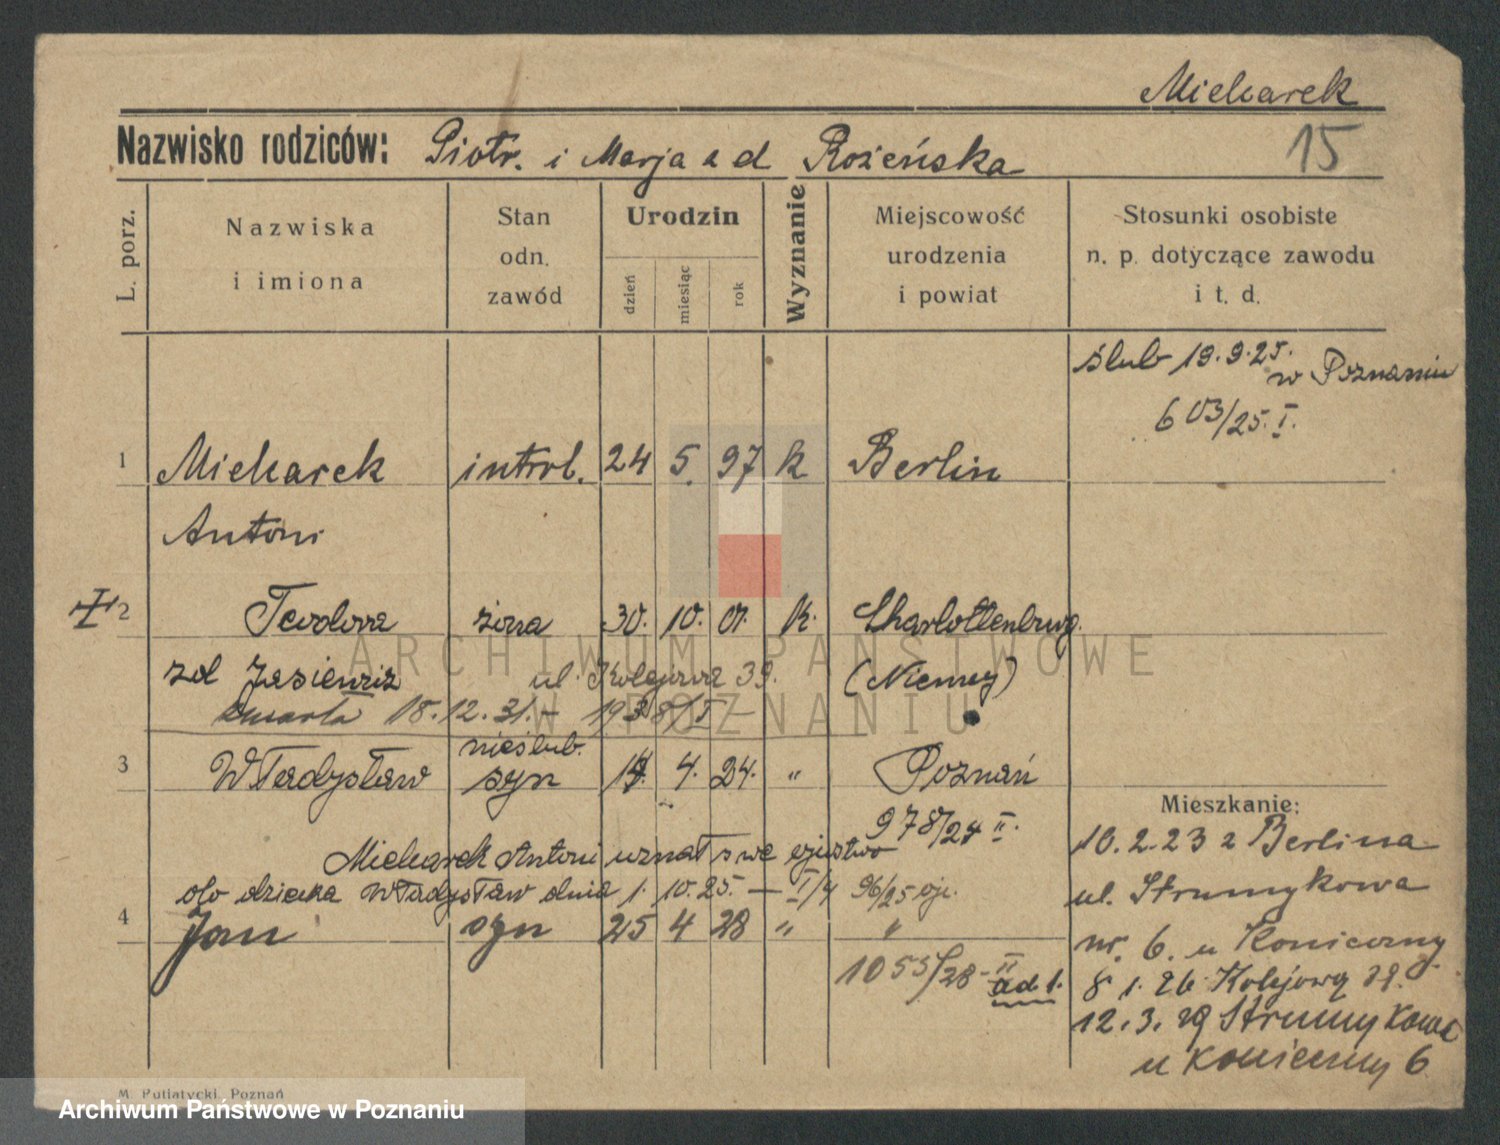 Mielcarek
15
Nazwisko rodziców: Piotr. i Marja z d Rożeńska
L. porz.
Nazwiska
i imiona
Stan
odn.
zawód
Urodzin
dzień
miesiąc
rok
Wyznanie
Miejscowość
urodzenia
i powiat
Stosunki osobiste
n. p. dotyczące zawodu
i t. d.
ślub 19.9.25.
w Poznaniu
603/25. I.
1 Mielcarek introl. 24 5. 97 k Berlin
Antoni
2 Teodora żona 30. 10. 01. k. Charlottenburg
zd Jasiewicz ul. Kolejowa 39. (Niemcy)
zmarła 18.12.31. –
nieślub.
3 Władysław syn 4. 24. " Poznań
978/24 II.
Mielcarek Antoni uznał swe ojcostwo
do dziecka Władysław dnia 1. 10. 25. — I/4 96/25 oje.
4 Jan syn 25 4 28 " "
1055/28 – II
ad 1.
Mieszkanie:
10.2.23 z Berlina
ul. Strumykowa
nr. 6. u Koniczny
8 1. 26 Kolejową 39.
12.3.29 Strumykowa
u Koniczny 6
ARCHIWUM PAŃSTWOWE
W POZNANIU
M. Putiatycki, Poznań
Archiwum Państwowe w Poznaniu